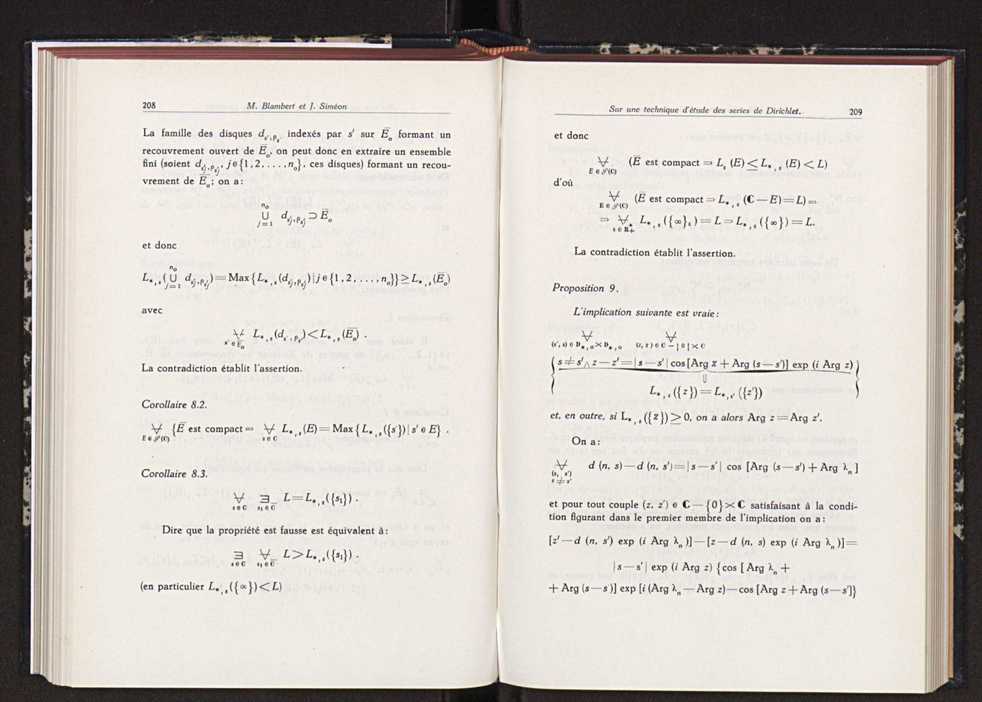 208
M. Blambert et J. Siméon
La famille des disques d_{s',ρ_{s'}} indexés par s' sur Ē_o formant un
recouvrement ouvert de Ē_o, on peut donc en extraire un ensemble
fini (soient d_{s'_j,ρ_{s'_j}}, j ∈ {1, 2, ...., n_o}, ces disques) formant un recou-
vrement de Ē_o; on a:
⋃_{j=1}^{n_o} d_{s'_j,ρ_{s'_j}} ⊃ Ē_o
et donc
L_{*,s}(⋃_{j=1}^{n_o} d_{s'_j,ρ_{s'_j}}) = Max {L_{*,s}(d_{s'_j,ρ_{s'_j}}) | j ∈ {1, 2, ...., n_o}} ≥ L_{*,s}(Ē_o)
avec
∀_{s' ∈ Ē_o} L_{*,s}(d_{s',ρ_{s'}}) < L_{*,s}(Ē_o) .
La contradiction établit l'assertion.
Corollaire 8.2.
∀_{E ∈ 𝒫(C)} {Ē est compact ⇒ ∀_{s ∈ C} L_{*,s}(E) = Max {L_{*,s}({s'}) | s' ∈ Ē} .
Corollaire 8.3.
∀_{s ∈ C} ∃_{s₁ ∈ C̄} L = L_{*,s}({s₁}) .
Dire que la propriété est fausse est équivalent à:
∃_{s ∈ C} ∀_{s₁ ∈ C̄} L > L_{*,s}({s₁}) .
(en particulier L_{*,s}({∞}) < L)
Sur une technique d'étude des series de Dirichlet.
209
et donc
∀_{E ∈ 𝒫(C)} (Ē est compact ⇒ L_s (E) ≤ L_{*,s} (E) < L)
d'où
∀_{E ∈ 𝒫(C)} (Ē est compact ⇒ L_{*,s} (C — E) = L) ⇒
⇒ ∀_{ε ∈ R₊^*} L_{*,s} ({∞}_ε) = L ⇒ L_{*,s} ({∞}) = L.
La contradiction établit l'assertion.
Proposition 9.
L'implication suivante est vraie:
∀_{(s', s) ∈ D_{*,o} × D_{*,o}} ∀_{(z, z') ∈ C — {0} × C}
{s ≠ s' ∧ z — z' = | s — s' | cos [Arg z + Arg (s — s')] exp (i Arg z)}
⇓
L_{*,s} ({z}) = L_{*,s'} ({z'})
et, en outre, si L_{*,s} ({z}) ≥ 0, on a alors Arg z = Arg z'.
On a:
∀_{(s, s') s ≠ s'} d (n, s) — d (n, s') = | s — s' | cos [Arg (s — s') + Arg λ_n]
et pour tout couple (z, z') ∈ C — {0} × C satisfaisant à la condi-
tion figurant dans le premier membre de l'implication on a:
[z' — d (n, s') exp (i Arg λ_n)] — [z — d (n, s) exp (i Arg λ_n)] =
| s — s' | exp (i Arg z) {cos [ Arg λ_n +
+ Arg (s — s )] exp [i (Arg λ_n — Arg z) — cos [Arg z + Arg (s — s']}